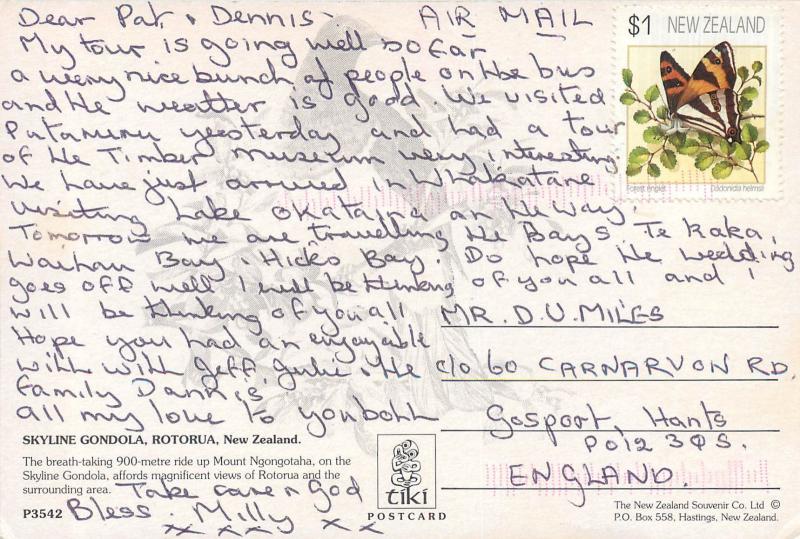 Dear Pat & Dennis -
AIR MAIL
$1 NEW ZEALAND
My tour is going well so far
a very nice bunch of people on the bus
and the weather is good. We visited
Putaruru yesterday and had a tour
of the Timber museum very interesting
We have just arrived in Whakatane
visiting Lake Okataina on the way.
Tomorrow we are travelling the Bays Te Kaha,
Waihau Bay. Hicks Bay. Do hope the wedding
goes off well I will be thinking of you all and I
will be thinking of you all
Hope you had an enjoyable
with Jeff, Julie & the
family Dannis
all my love to you both
Forest ringlet Dodonidia helmsii
MR. D. U. MILES
c/o 60 CARNARVON RD.
Gosport, Hants
PO12 3QS.
ENGLAND.
SKYLINE GONDOLA, ROTORUA, New Zealand.
The breath-taking 900-metre ride up Mount Ngongotaha, on the
Skyline Gondola, affords magnificent views of Rotorua and the
surrounding area.
Take care n God
Bless. Milly
x x x x x x
P3542
tiki
POSTCARD
The New Zealand Souvenir Co. Ltd ©
P.O. Box 558, Hastings, New Zealand.